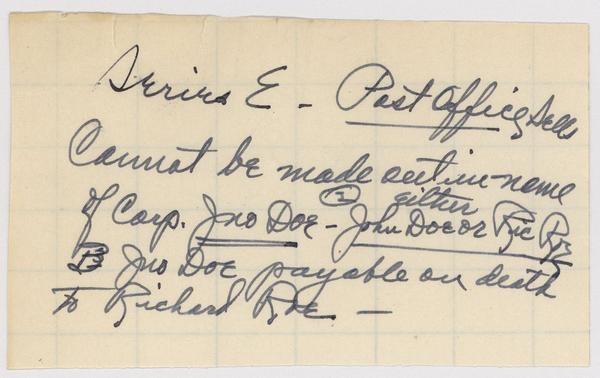 Series E - Post Office Sells
Cannot be made out in name
② either
of Corp. Jno Doe - John Doe or Ric Roe
Jno Doe payable on death
to Richard Roe —